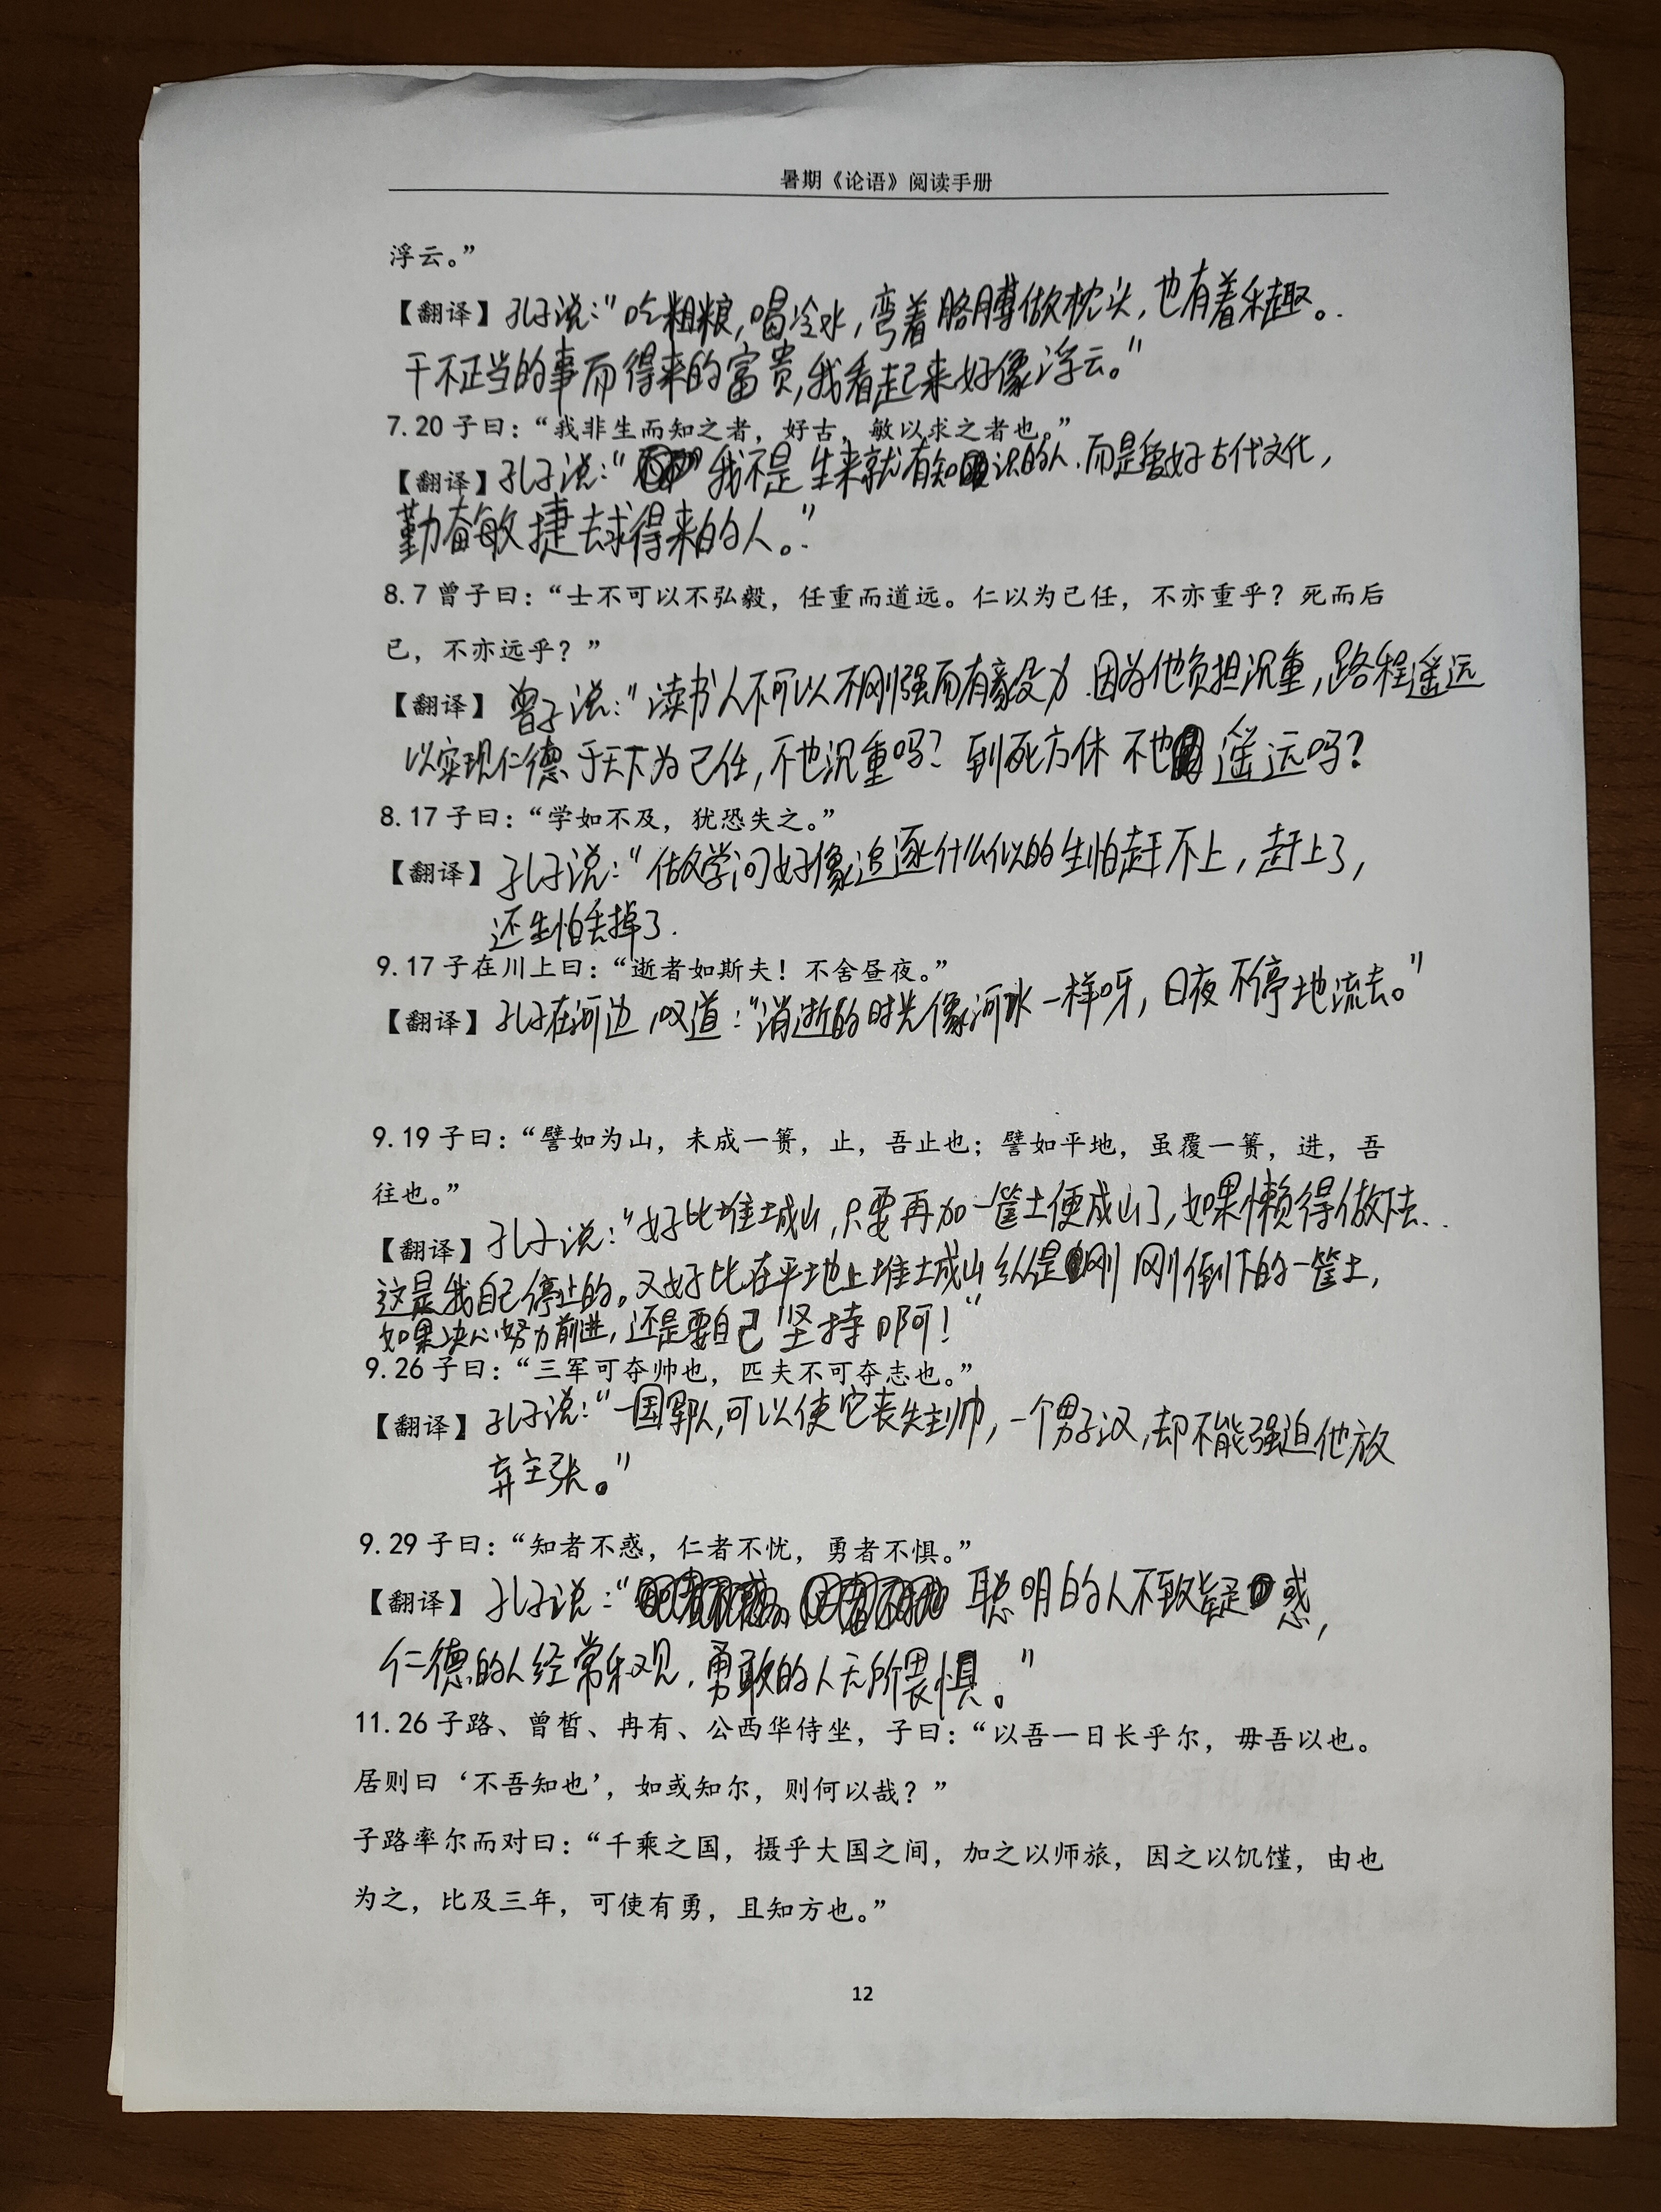 暑期《论语》阅读手册
浮云。”
【翻译】孔子说:“吃粗粮,喝冷水,弯着胳膊做枕头,也有着乐趣。
干不正当的事而得来的富贵,我看起来好像浮云。”
7.20 子曰:“我非生而知之者,好古,敏以求之者也。”
【翻译】孔子说:“我不是生来就有知识的人.而是爱好古代文化,
勤奋敏捷去求得来的人。”
8.7 曾子曰:“士不可以不弘毅,任重而道远。仁以为己任,不亦重乎?死而后
已,不亦远乎?”
【翻译】曾子说:“读书人不可以不刚强而有毅力.因为他负担沉重,路程遥远
以实现仁德于天下为己任,不也沉重吗?到死方休不也遥远吗?
8.17 子曰:“学如不及,犹恐失之。”
【翻译】孔子说:“做学问好像追逐什么似的生怕赶不上,赶上了,
还生怕丢掉了.
9.17 子在川上曰:“逝者如斯夫!不舍昼夜。”
【翻译】孔子在河边,叹道:“消逝的时光像河水一样呀,日夜不停地流去。”
9.19 子曰:“譬如为山,未成一篑,止,吾止也;譬如平地,虽覆一篑,进,吾
往也。”
【翻译】孔子说:“好比堆土成山,只要再加一筐土便成山了,如果懒得做下去..
这是我自己停止的。又好比在平地上堆土成山纵是刚刚倒下的一筐土,
如果决心努力前进,还是要自己坚持啊!”
9.26 子曰:“三军可夺帅也,匹夫不可夺志也。”
【翻译】孔子说:“一国军队,可以使它丧失主帅,一个男子汉,却不能强迫他放
弃主张。”
9.29 子曰:“知者不惑,仁者不忧,勇者不惧。”
【翻译】孔子说:“聪明的人不致疑惑,
仁德的人经常乐观.勇敢的人无所畏惧。”
11.26 子路、曾皙、冉有、公西华侍坐,子曰:“以吾一日长乎尔,毋吾以也。
居则曰‘不吾知也’,如或知尔,则何以哉?”
子路率尔而对曰:“千乘之国,摄乎大国之间,加之以师旅,因之以饥馑,由也
为之,比及三年,可使有勇,且知方也。”
12